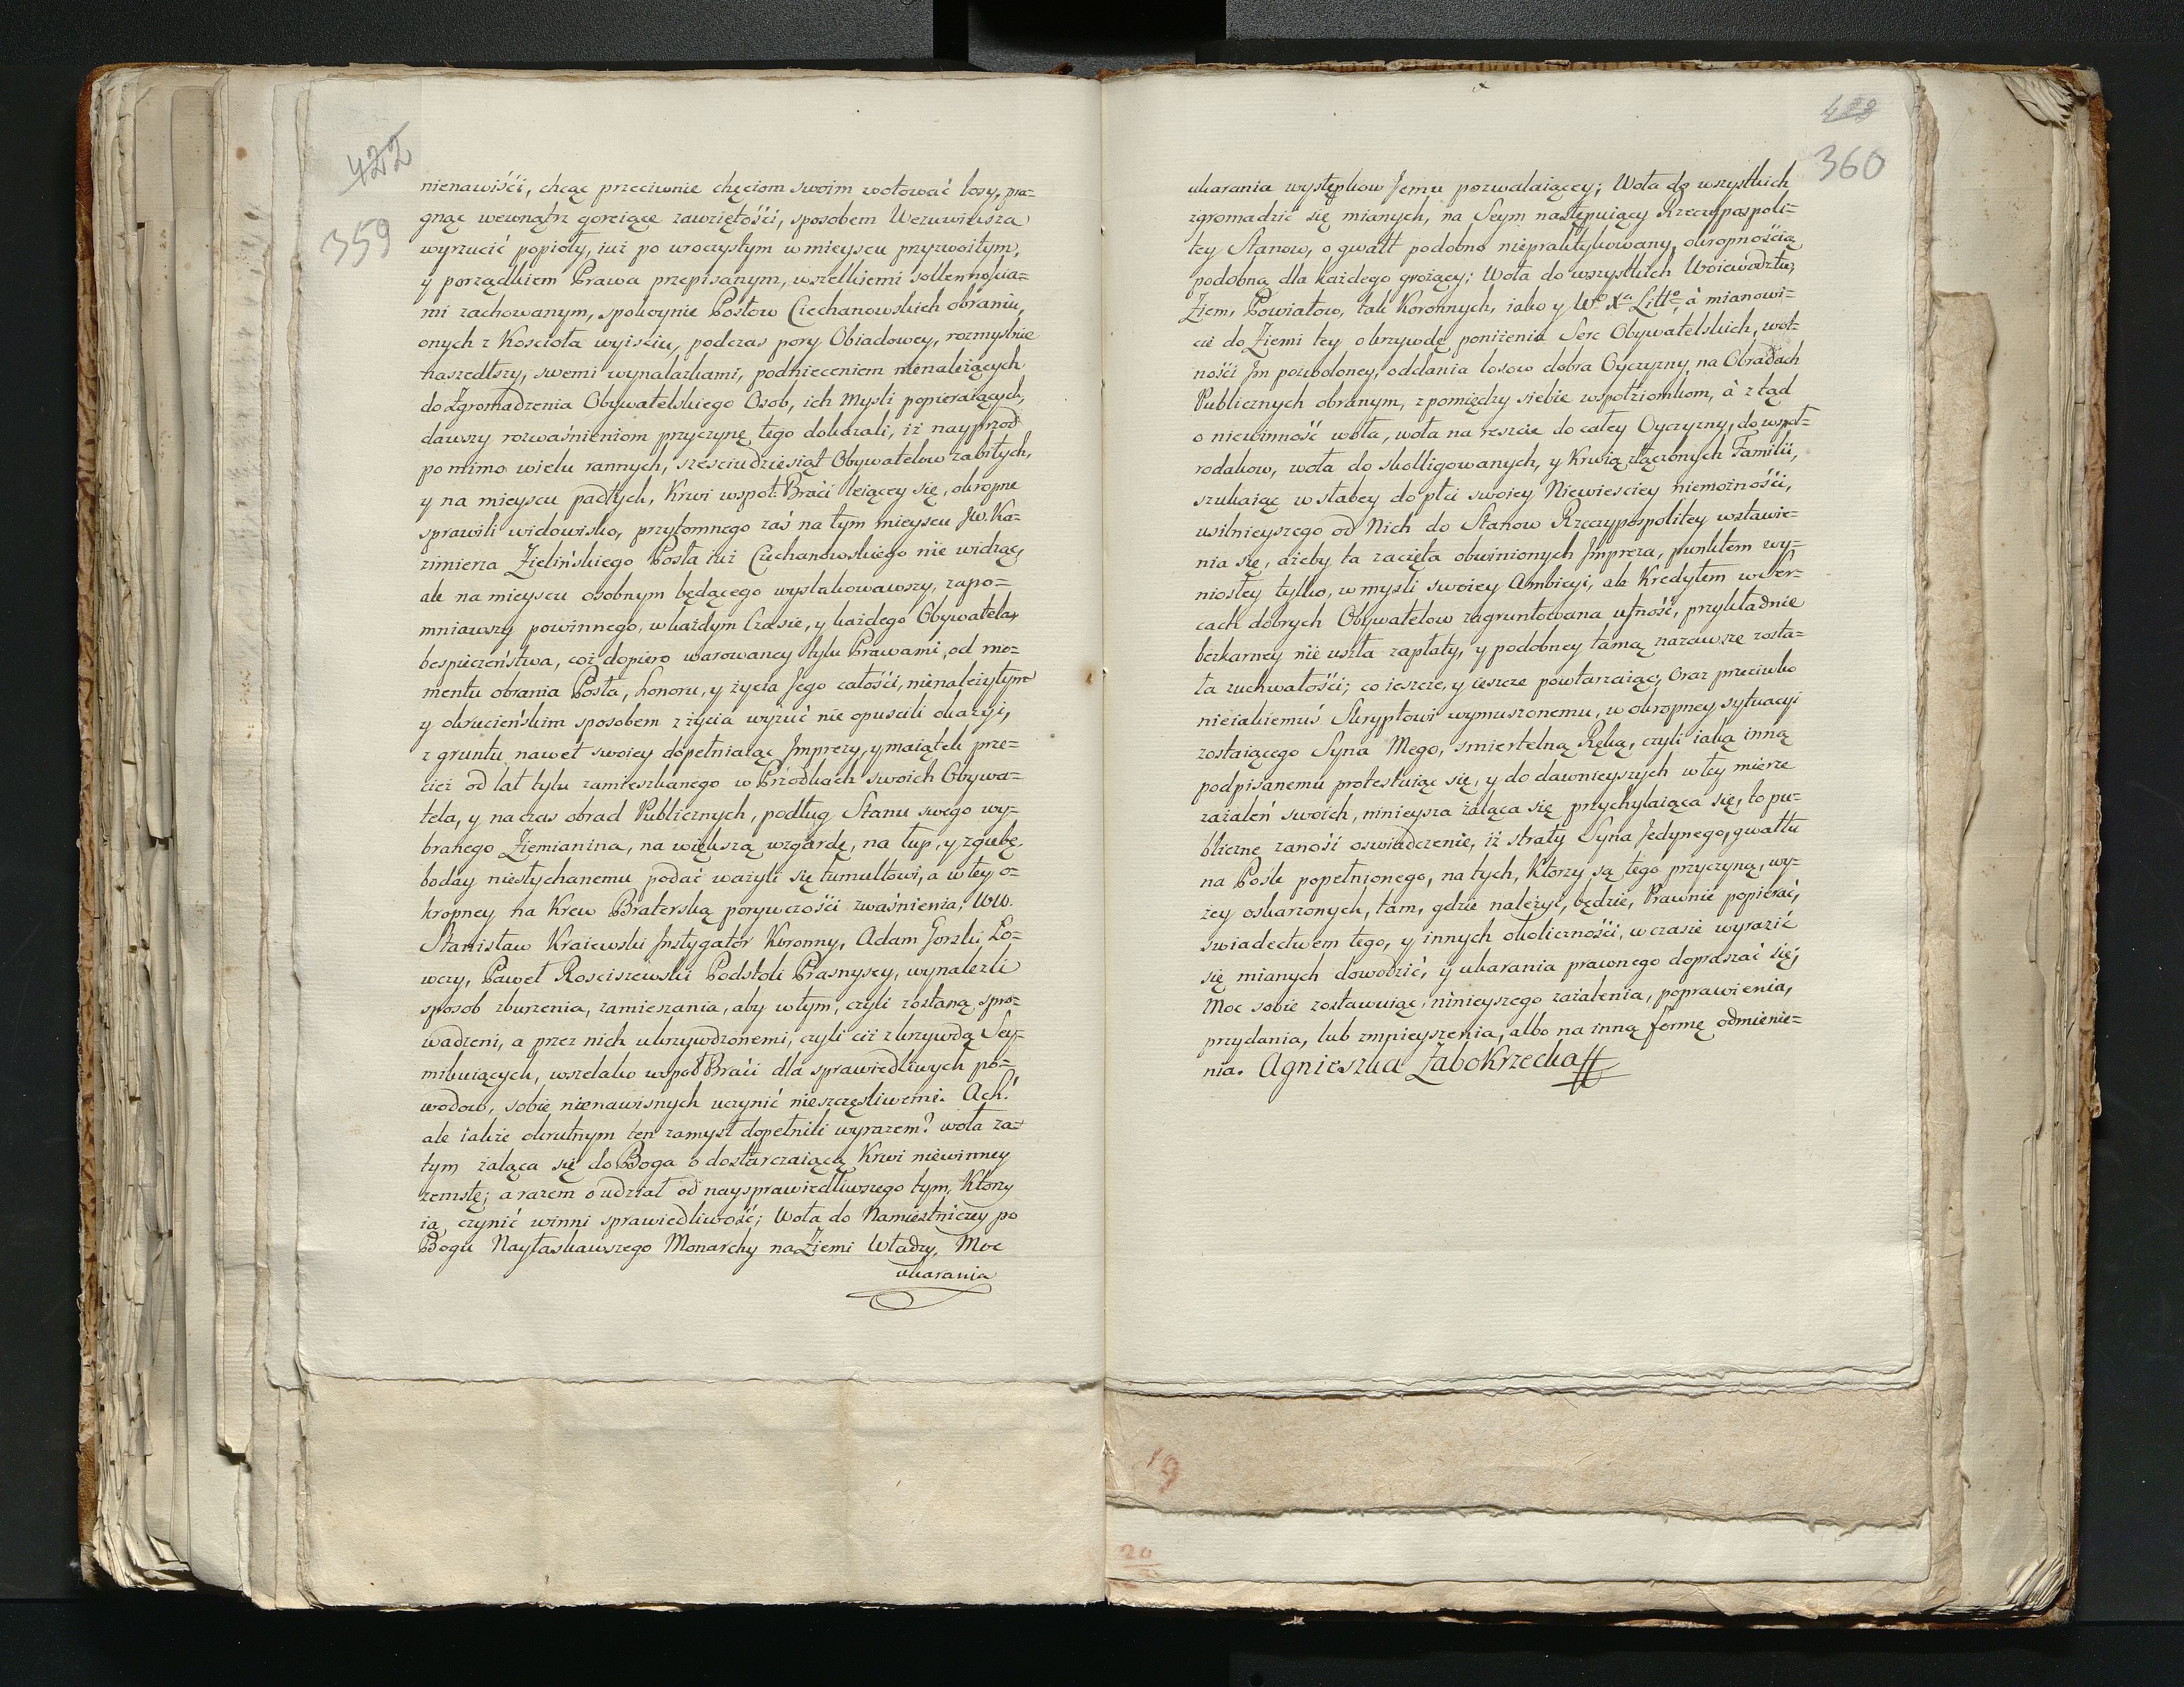 422
359
nienawiśći, chcąc przeciwnie chęciom swoim wotować losy, pra=
gnąc wewnątrz goreiące zawziętośći, sposobem Wezuwiusza
wyrzucić popioły, iuż po uroczystym w mieyscu przyzwoitym,
y porządkiem Prawa przepisanym, wszelkiemi sollennościa=
mi zachowanym, spokoynie Posłow Ciechanowskich obraniu,
onych z Koscioła wyiściu, podczas pory Obiadowey, rozmyślnie
naszedłszy, swemi wynalazkami, podnieceniem nienależących
do Zgromadzenia Obywatelskiego Osob, ich Mysli popieraiących,
dawszy rozwaśnieniom przyczynę tego dokazali, iż nayprzod
po mimo wielu rannych, sześciudziesiąt Obywatelow zabitych,
y na mieyscu padłych, Krwi wspoł Braći leiącey się, okropne
sprawili widowisko, przytomnego zaś na tym mieyscu JW. Ka=
zimierza Zielińskiego Posła iuż Ciechanowskiego nie widząc,
ale na mieyscu osobnym będącego wystakowawszy, zapo=
mniawszy powinnego, w każdym Czasie, y każdego Obywatela,
bespieczeństwa, coż dopiero warowaney tylu Prawami, od mo=
mentu obrania Posła, honoru, y życia Jego całośći, nienależytym
y okrucieńskim sposobem z życia wyzuć nie opuscili okazyi,
z gruntu nawet swoiey dopełniaiąc Imprezy, y maiątek prze=
cież od lat tylu zamieszkanego w Przodkach swoich Obywa=
tela, y na czas obrad Publicznych, podług Stanu swego wy=
branego Ziemianina, na większą wzgardę, na łup, y zgubę,
boday niesłychanemu podać ważyli się tumultowi, a w tey o=
kropney na Krew Braterską porywczośći zwaśnienia, WW.
Stanisław Kraiewski Instygator Koronny, Adam Gorski Ło=
wczy, Paweł Rosciszewski Podstoli Prasnyscy, wynalezli
sposob zburzenia, zamieszania, aby w tym, czyli zostaną spro=
wadzeni, a przez nich ukrzywdzonemi, czyli ciż z krzywdą Sey=
mikuiących, wszelako wspoł Braći dla sprawiedliwych po=
wodow, sobie nienawisnych uczynić nieszczęsliwemi. Ach!
ale iakże okrutnym ten zamysł dopełnili wyrazem? woła za=
tym żaląca się do Boga o dostarczaiącą Krwi niewinney
zemstę; a razem o udział od naysprawiedliwszego tym, Ktorzy
ią czynić winni sprawiedliwość; Woła do Namiestniczey po
Bogu Nayłaskawszego Monarchy na Ziemi Władzy, Moc
ukarania
360
ukarania występkow Jemu pozwalaiącey; Woła do wszystkich
zgromadzić się mianych, na Seym następuiący Rzeczypospoli=
tey Stanow, o gwałt podobno niepraktykowany, okropnością
podobną dla każdego grożący; Woła do wszystkich Woiewodztw,
Ziem, Powiatow, tak Koronnych, iako y Wo Xa Litto, à mianowi=
cie do Ziemi tey o krzywdę poniżenia Serc Obywatelskich, wol=
nośći Im pozwoloney, oddania losow dobra Oyczyzny, na Obradach
Publicznych obranym, z pomiędzy siebie wspołziomkom, à z tąd
o niewinność woła, woła na reszcie do całey Oyczyzny, do wspoł=
rodakow, woła do skolligowanych, y Krwią złączonych Familii,
szukaiąc w słabey do płci swoiey Niewiesciey niemożnośći,
usilnieyszego od Nich do Stanow Rzeczypospolitey wstawie=
nia się, ażeby ta zacięta obwinionych Impreza, punktem wy=
niosłey tylko, w mysli swoiey Ambicyi, ale Kredytem w Ser=
cach dobrych Obywatelow zagruntowana ufność, przykładnie
bezkarney nie uszła zapłaty, y podobney tamą na zawsze zosta=
ła zuchwałośći; co ieszcze, y ieszcze powtarzaiąc, Oraz przeciwko
nieiakiemuś Skryptowi wymuszonemu, w okropney sytuacyi
zostaiącego Syna Mego, śmiertelną Ręką, czyli iaką inną
podpisanemu protestuiąc się, y do dawnieyszych w tey mierze
zażaleń swoich, ninieysza żaląca się przychylaiąca się, to pu=
bliczne zanośi oswiadczenie, iż straty Syna Jedynego, gwałtu
na Pośle popełnionego, na tych, Ktorzy są tego przyczyną, wy=
żey oskarzonych, tam, gdzie należyi, będzie, Prawnie popierać,
swiadectwem tego, y innych okolicznośći, w czasie wyrazić
się mianych dowodzić, y ukarania prawnego dopraszać się,
Moc sobie zostawuiąc, ninieyszego zażalenia, poprawienia,
przydania, lub zmnieyszenia, albo na inną formę odmienie=
nia. Agnieszka Zabokrzecka
19
20